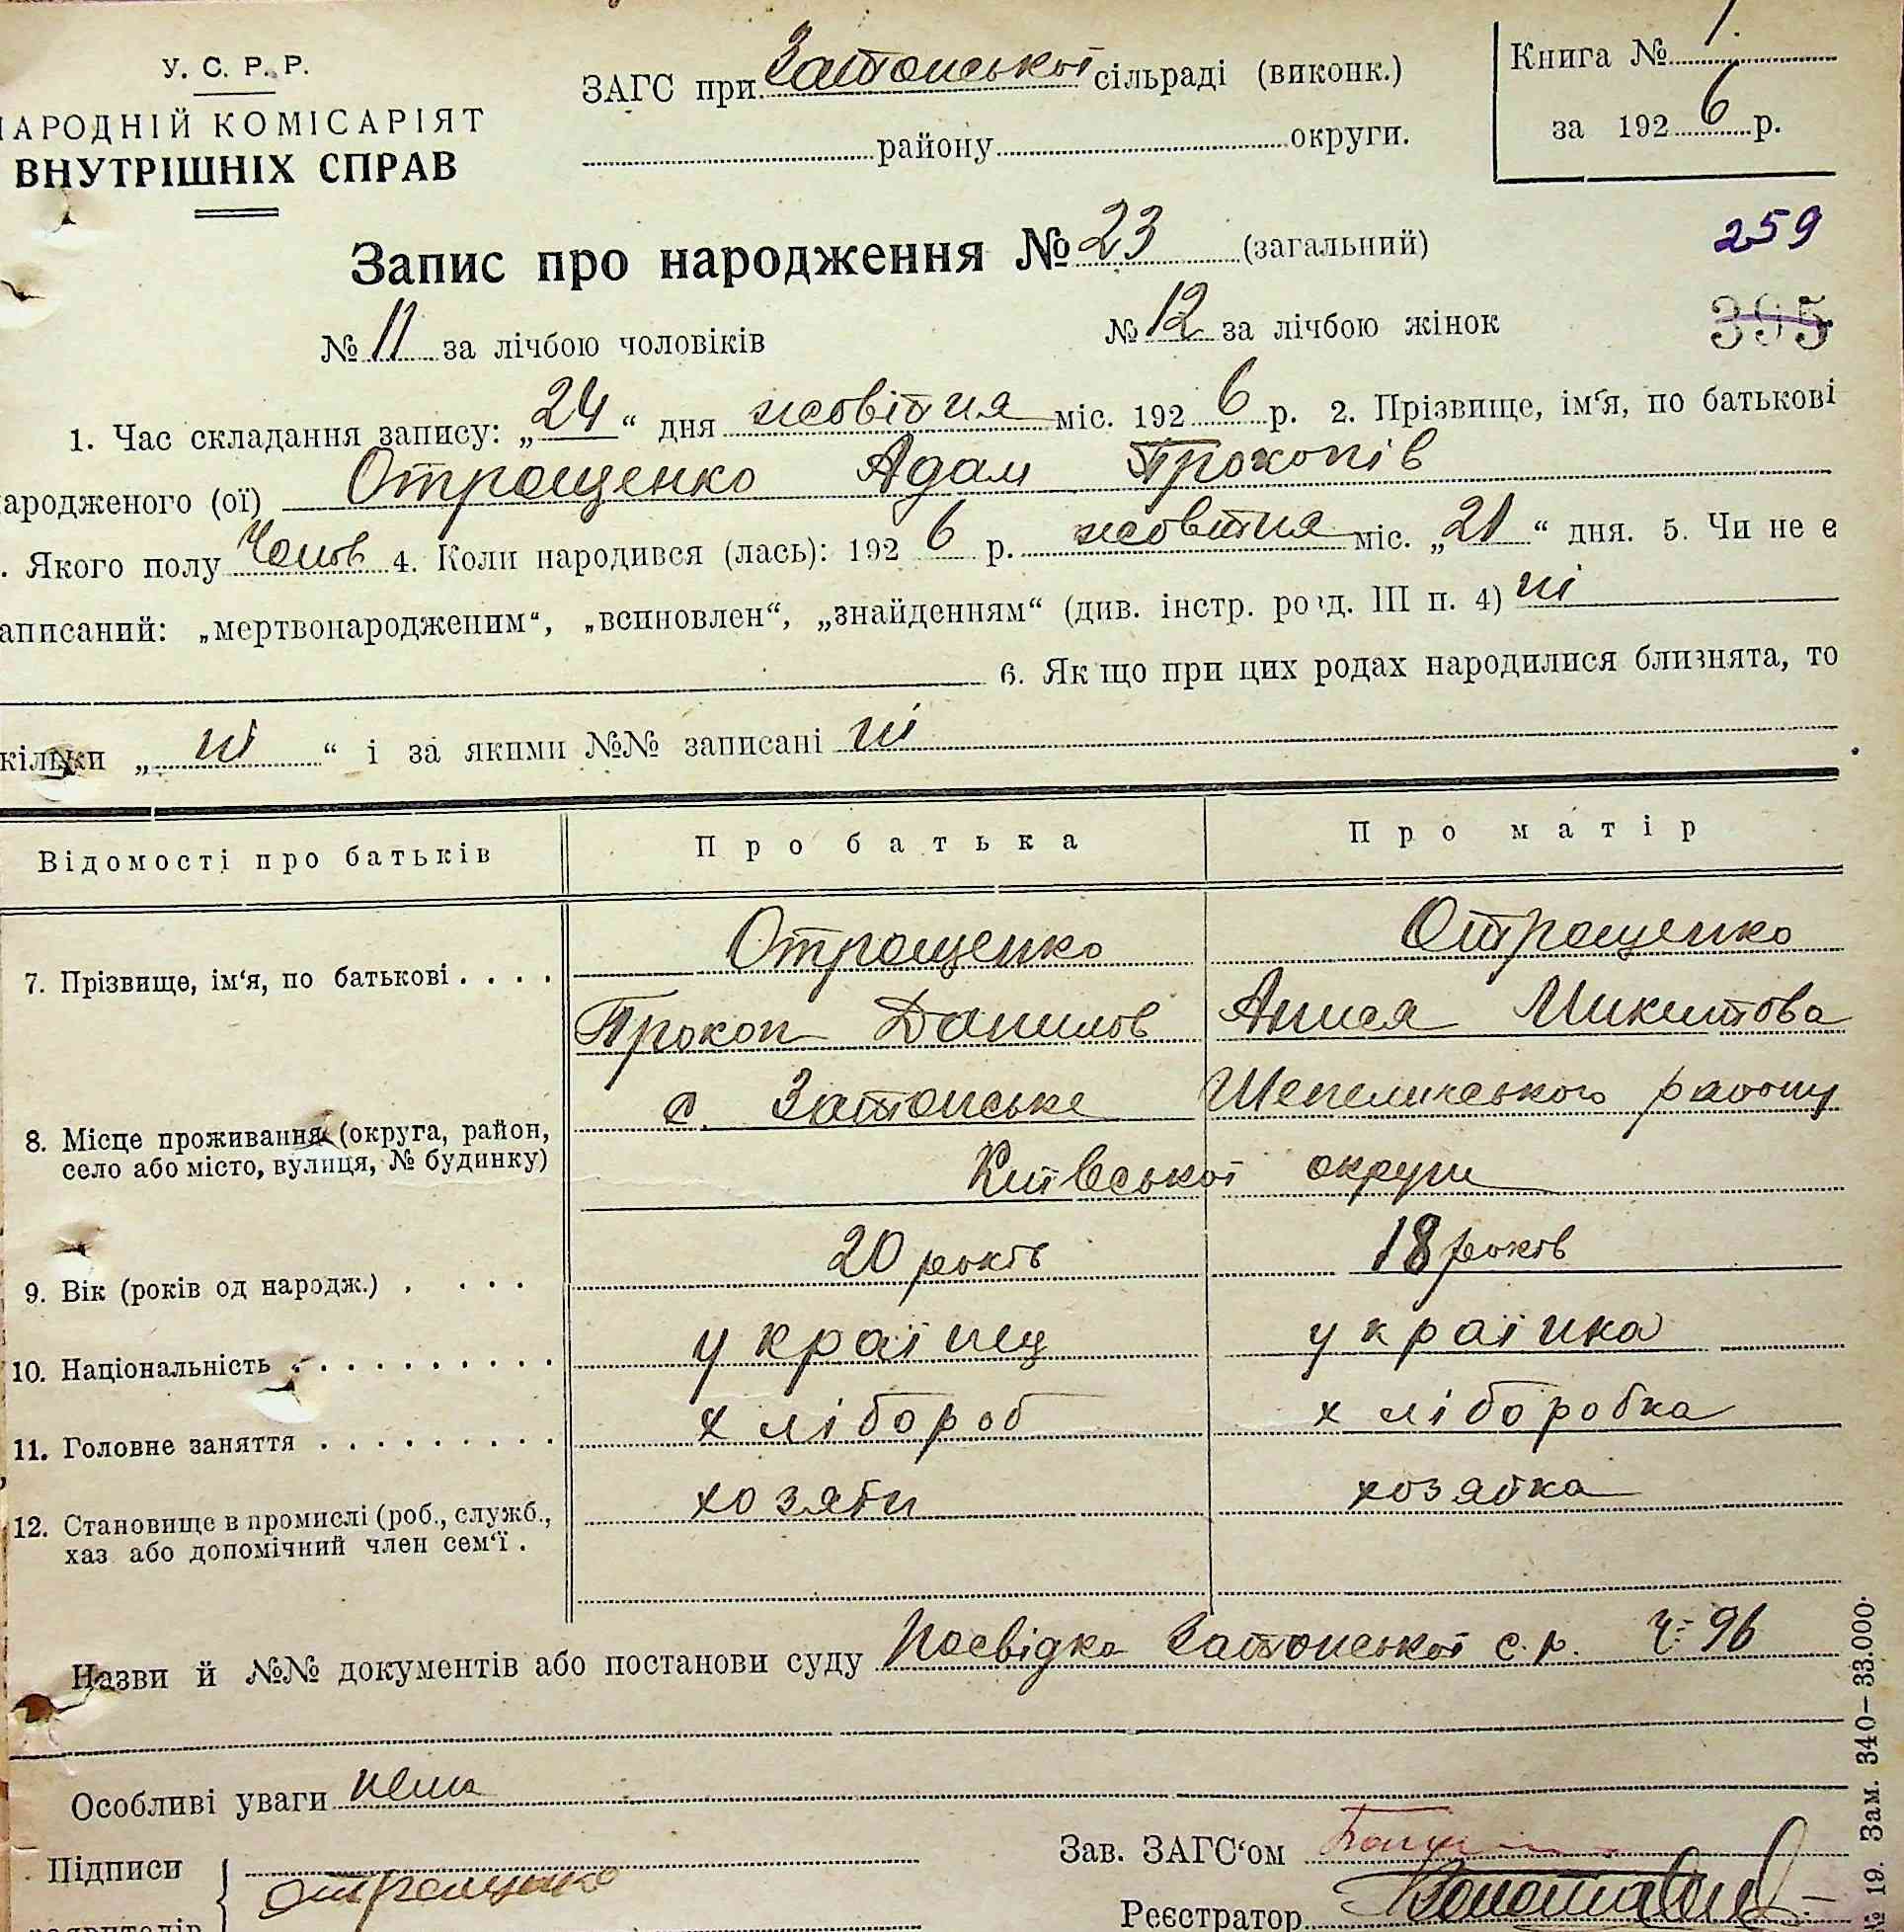 У. С. Р. Р.
НАРОДНІЙ КОМІСАРІЯТ
ВНУТРІШНІХ СПРАВ
ЗАГС при Затонської сільраді (виконк.)
району округи.
Книга № 1.
за 1926 р.
Запис про народження № 23 (загальний)
259
№ 11 за лічбою чоловіків № 12 за лічбою жінок
395
1. Час складання запису: „24“ дня жовтня міс. 1926 р. 2. Прізвище, ім‘я, по батькові
народженого (ої) Отрощенко Адам Прокопів
. Якого полу Чолов 4. Коли народився (лась): 1926 р. жовтня міс. „21“ дня. 5. Чи не є
записаний: „мертвонародженим“, „всиновлен“, „знайденням“ (див. інстр. розд. III п. 4) ні
6. Як що при цих родах народилися близнята, то
кільки „ні“ і за якими №№ записані ні
Відомості про батьків Про батька Про матір
7. Прізвище, ім‘я, по батькові . . . . Отрощенко Отрощенко
Прокоп Данилов Анися Микитова
8. Місце проживання (округа, район, село або місто, вулиця, № будинку) с. Затонське Шепелицького району
Київської округи
9. Вік (років од народж.) . . . . 20 років 18 років
10. Національність . . . . . . . . . . українц українка
11. Головне заняття . . . . . . . . . хлібороб хліборобка
12. Становище в промислі (роб., служб., хаз або допомічний член сем‘ї . хозяїн хозяйка
Назви й №№ документів або постанови суду Посвідка Затонської с.р. Ч. 96
Особливі уваги нема
Підписи
Отрощенко
Зав. ЗАГС‘ом
Реєстратор
№ 19. Зам. 340—33.000.